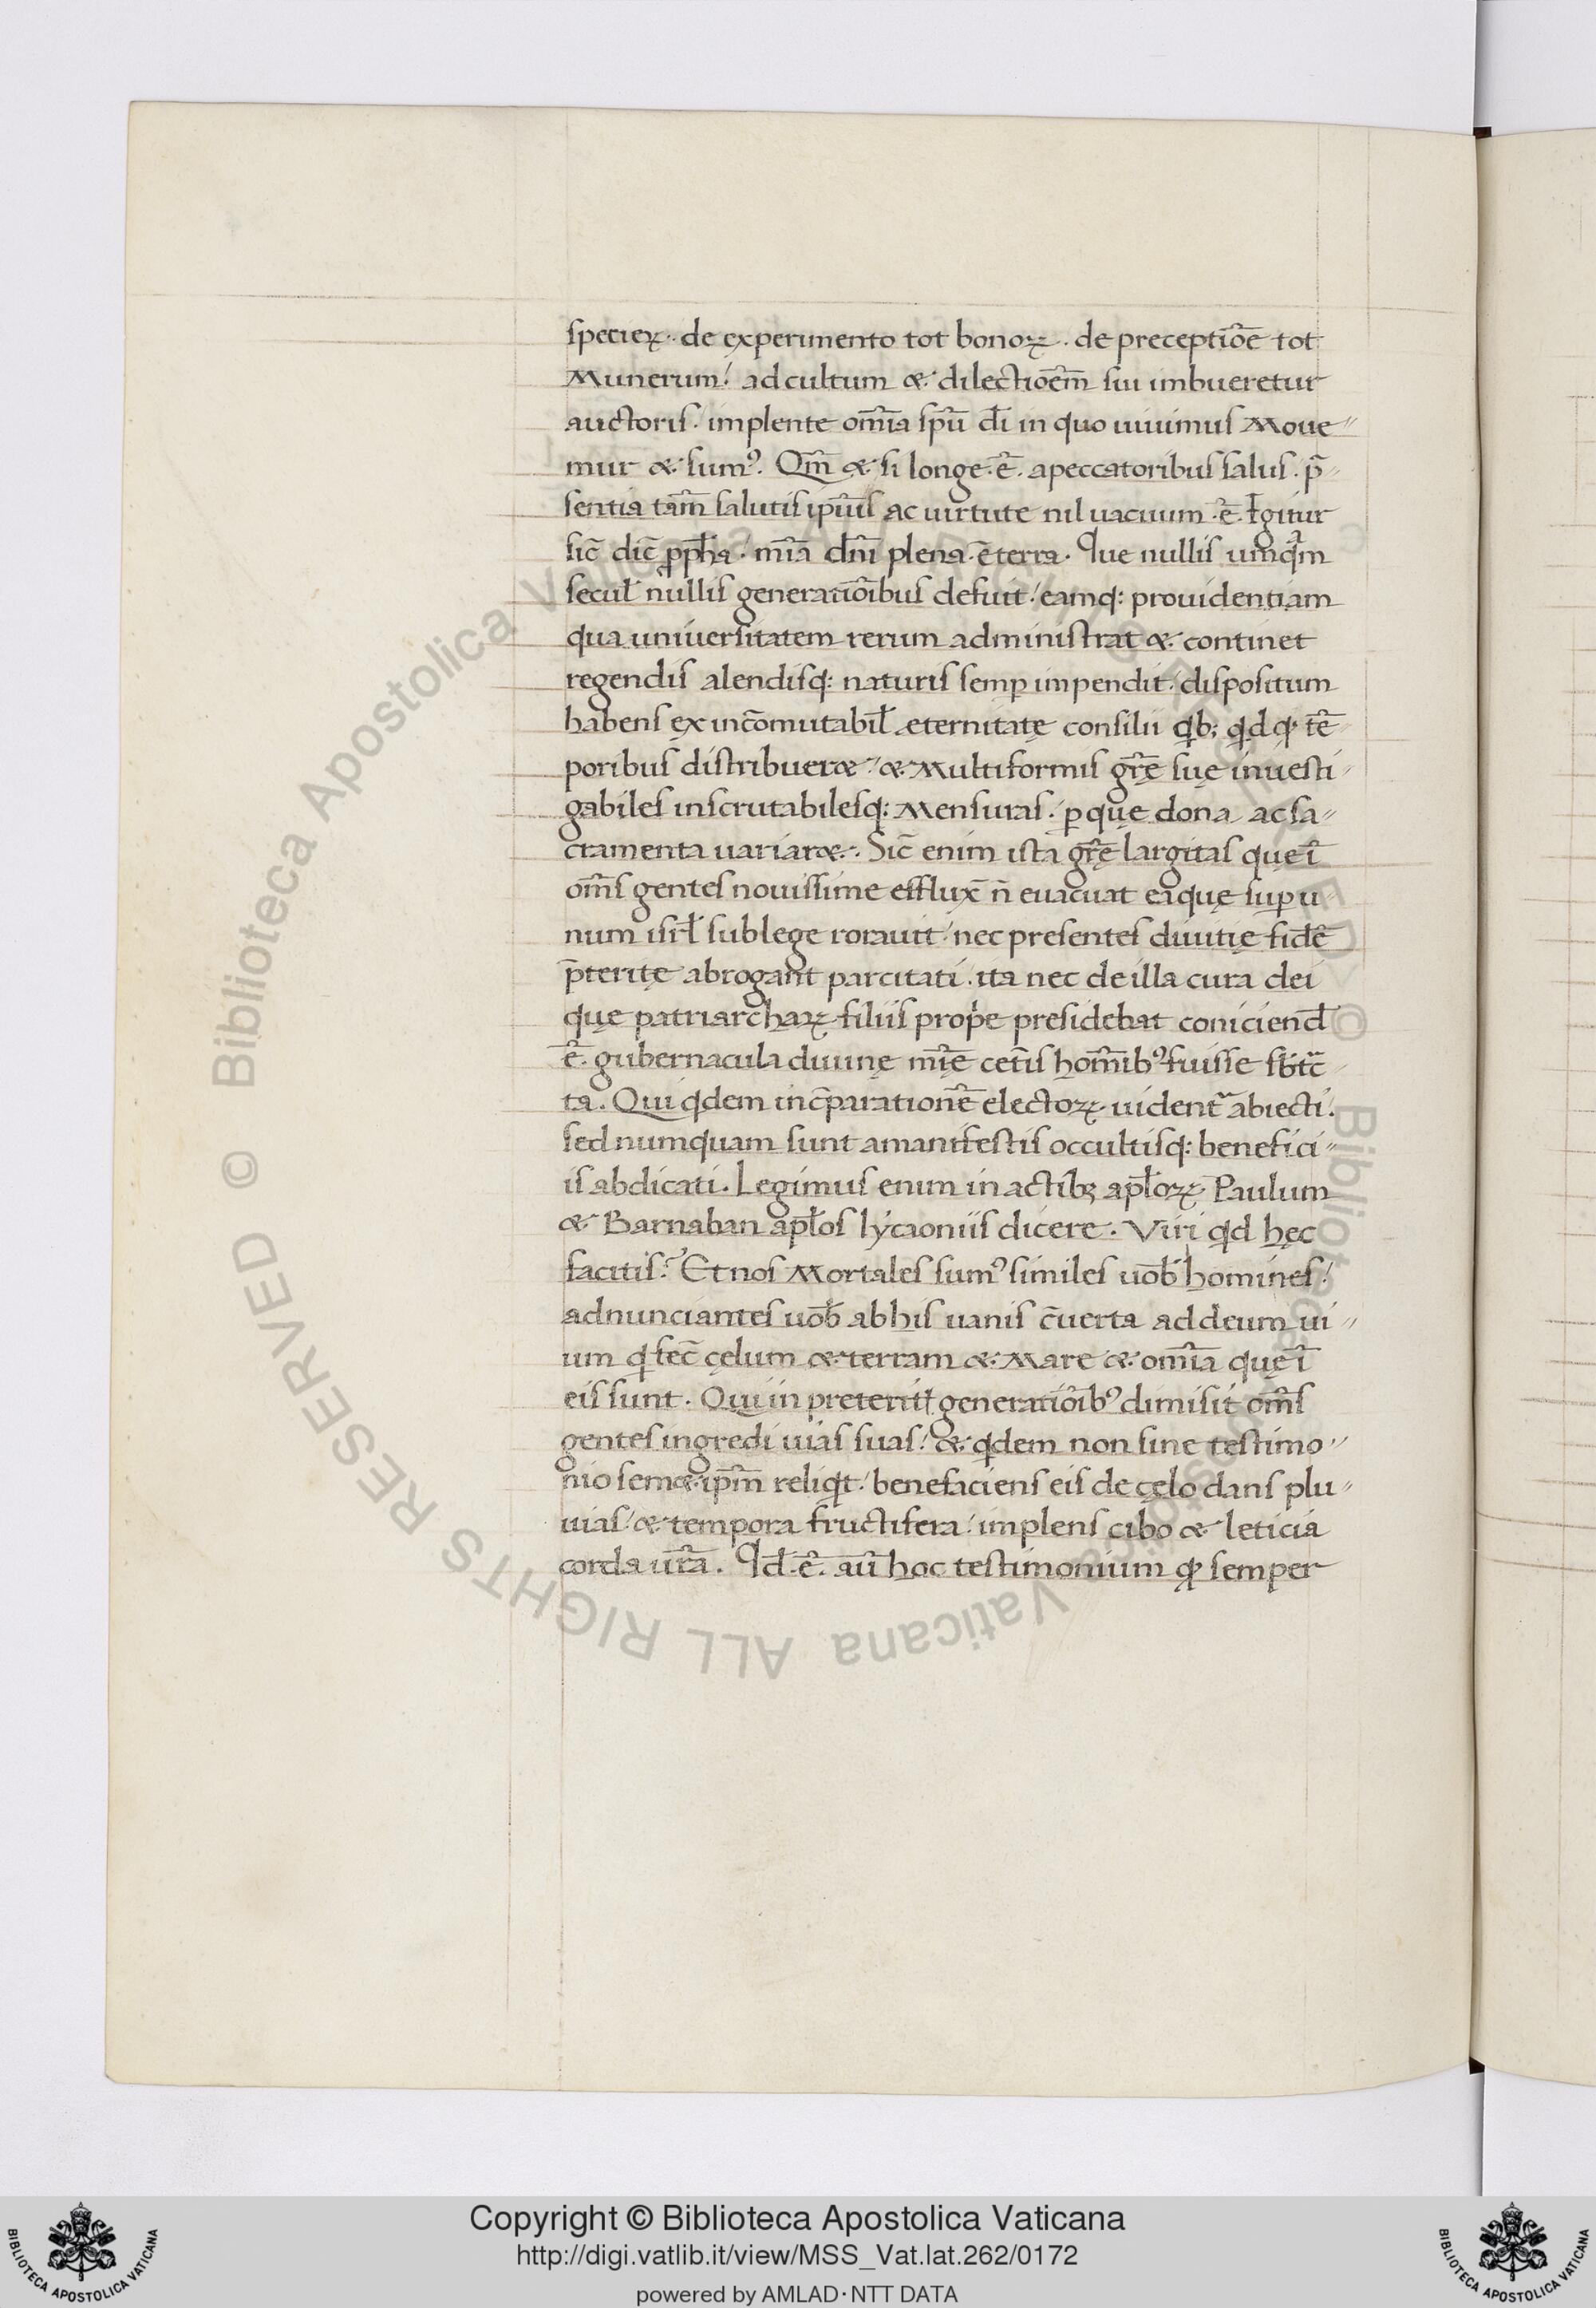 specieꝝ· de experimento tot bonoꝝ. de preceptiōe tot
Munerum! ad cultum & dilectiōēm sui imbueretur
auctoris! implente om̄ia spū di in quo uiuimus Moue"
mur & sumꝰ. Qm̄ & si longe ·ē· apeccatoribus salus. p̄"
sentia tam̄ salutis ipiuis ac uirtute nil uacuum ·ē· Igitur
sic̄ dic̄ ꝓpha! mīa dn̄i plena ·ē terra. Que nullis umq̄m
secul̄ nullis generatiōibus defuit! eamq: prouidentiam
qua uniuersitatem rerum administrat & continet
regendis alendisq: naturis semꝑ impendit! dispositum
habens ex incōmutabil̄ æternitate consilii qb; qdq tē
poribus distribueræ! & Multiformis gr̄ę suę inuesti"
gabiles inscrutabilesq: Mensuras! ꝑ quę dona ac sa"
cramenta uariaræ. Sic̄ enim ista gr̄ę largitas quę ī
om̄s gentes nouissime effluxˉ n̄ euacuat ea quę suꝑ u"
num isrl̄ sublege rorauit! nec presentes diuitię fidē
p̄teritę abrogant parcitati. ita nec de illa cura dei
quę patriarchaꝝ filiis propꝛe presidebat coniciend̄
ē. gubernacula diuinę mīę cetīs hom̄ibꝰ fuisse sb̄tc̄"
ta. Qui qdem inc̄parationē electoꝝ uident̄ abiecti!
sed numquam sunt amanifestis occultisq: benefici"
is abdicati. Legimus enim in actibꝫ apl̄oꝝ Paulum
& Barnaban apl̄os lẏcaoniis dicere. Viri qd hęc
facitis? Et nos Mortales sumꝰ similes uob̄ homines!
adnunciantes uob̄ ab his uanis c̄uerta ad deum ui"
uum q fec̄ cęlum & terram & Mare & om̄ia quę ī
eis sunt. Qui in preterit̄ generatiōibꝰ dimisit om̄s
gentes ingredi uias suas! & qdem non sine testimo"
nio semæ ipm̄ reliqt! benefaciens eis de cęlo dans plu"
uias! & tempora fructifera! implens cibo & leticia
corda ur̄a. Qd̄ ·ē· aū hoc testimonium q semper
Copyright © Biblioteca Apostolica Vaticana
http://digi.vatlib.it/view/MSS_Vat.lat.262/0172
powered by AMLAD·NTT DATA